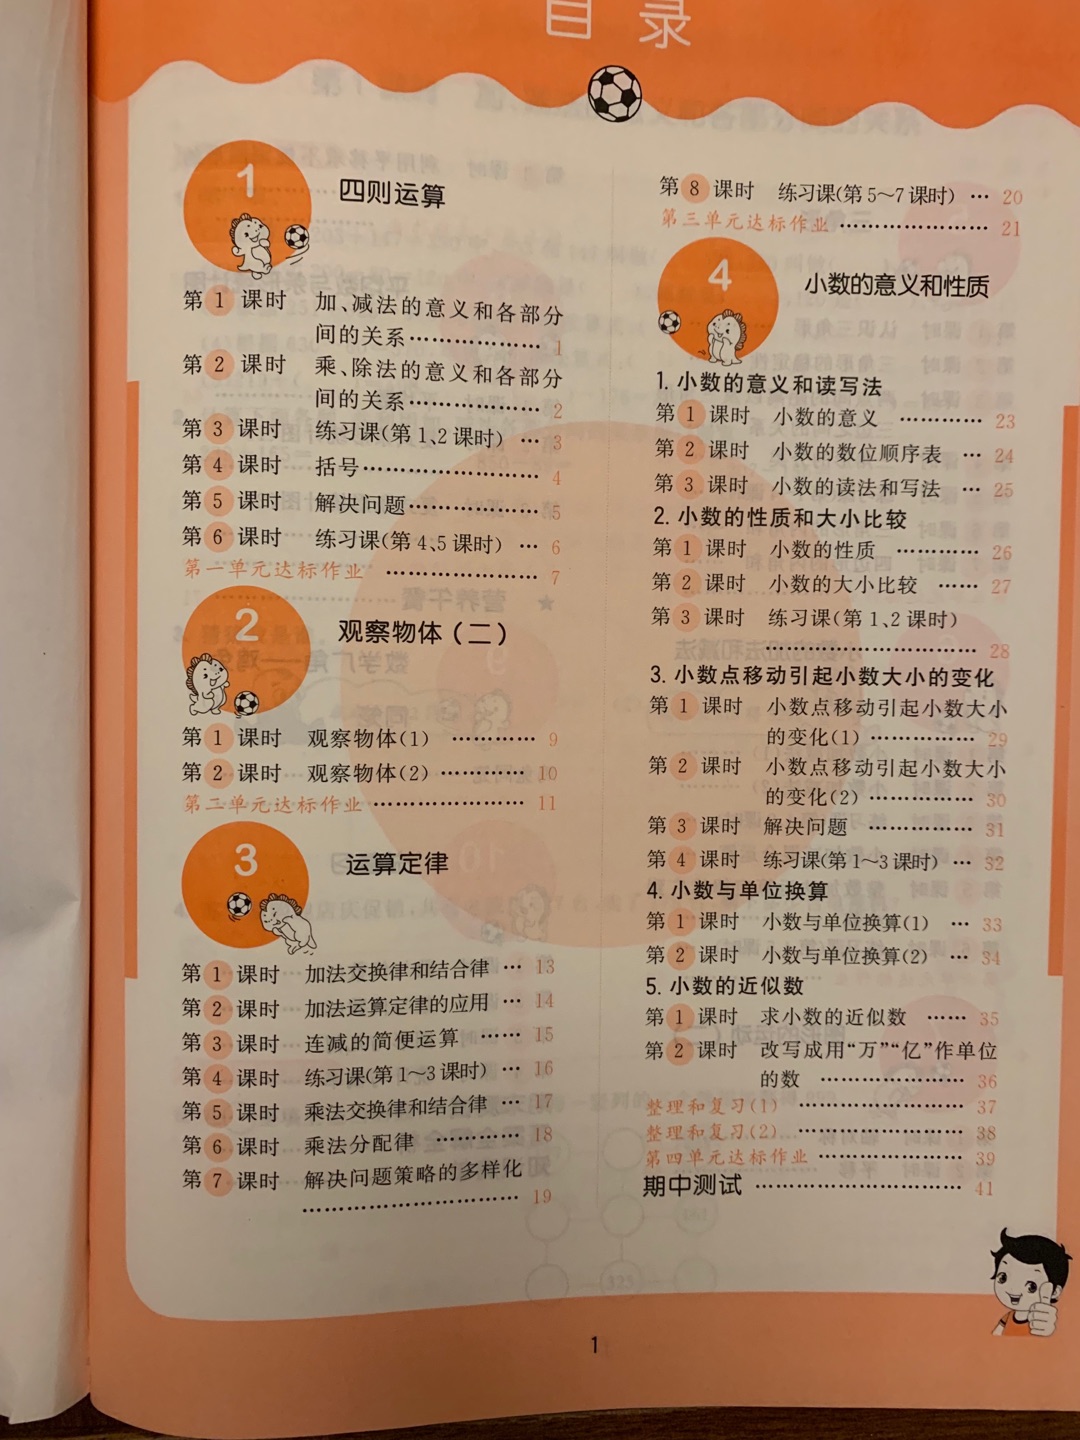 目 录
1
四则运算
第1课时 加、减法的意义和各部分
间的关系………………… 1
第2课时 乘、除法的意义和各部分
间的关系………………… 2
第3课时 练习课(第1、2课时) … 3
第4课时 括号……………………… 4
第5课时 解决问题………………… 5
第6课时 练习课(第4、5课时) … 6
第一单元达标作业 …………………… 7
2
观察物体(二)
第1课时 观察物体(1) ………… 9
第2课时 观察物体(2) ………… 10
第二单元达标作业 …………………… 11
3
运算定律
第1课时 加法交换律和结合律 … 13
第2课时 加法运算定律的应用 … 14
第3课时 连减的简便运算 …… 15
第4课时 练习课(第1~3课时) … 16
第5课时 乘法交换律和结合律 … 17
第6课时 乘法分配律 ………… 18
第7课时 解决问题策略的多样化
…………………………… 19
第8课时 练习课(第5~7课时) … 20
第三单元达标作业 …………………… 21
4
小数的意义和性质
1. 小数的意义和读写法
第1课时 小数的意义 ………… 23
第2课时 小数的数位顺序表 … 24
第3课时 小数的读法和写法 … 25
2. 小数的性质和大小比较
第1课时 小数的性质 ………… 26
第2课时 小数的大小比较 …… 27
第3课时 练习课(第1、2课时)
…………………………… 28
3. 小数点移动引起小数大小的变化
第1课时 小数点移动引起小数大小
的变化(1) …………… 29
第2课时 小数点移动引起小数大小
的变化(2) …………… 30
第3课时 解决问题 …………… 31
第4课时 练习课(第1~3课时) … 32
4. 小数与单位换算
第1课时 小数与单位换算(1) … 33
第2课时 小数与单位换算(2) … 34
5. 小数的近似数
第1课时 求小数的近似数 …… 35
第2课时 改写成用“万”“亿”作单位
的数 ………………… 36
整理和复习(1) …………………… 37
整理和复习(2) …………………… 38
第四单元达标作业 …………………… 39
期中测试 …………………………… 41
1